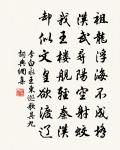 祖龍浮海不成橋
漢武尋陽空射蛟
我王樓艦輕秦漢
却似文皇欲渡遼
李白永王東巡歌其九
詞典網集